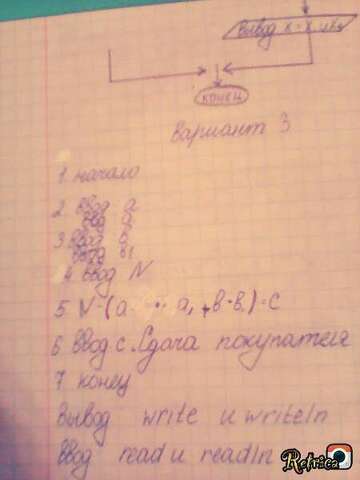 Вывод
конец
Вариант 3
1. начало
2. Ввод a
Ввод a₁
3. Ввод в
Ввод в₁
4. Ввод N
5. N-(a · a₁ + в·в₁)=c
6 Ввод с. Сдача покупателя
7 конец
Вывод write и writeln
Ввод read и readln
Retrica